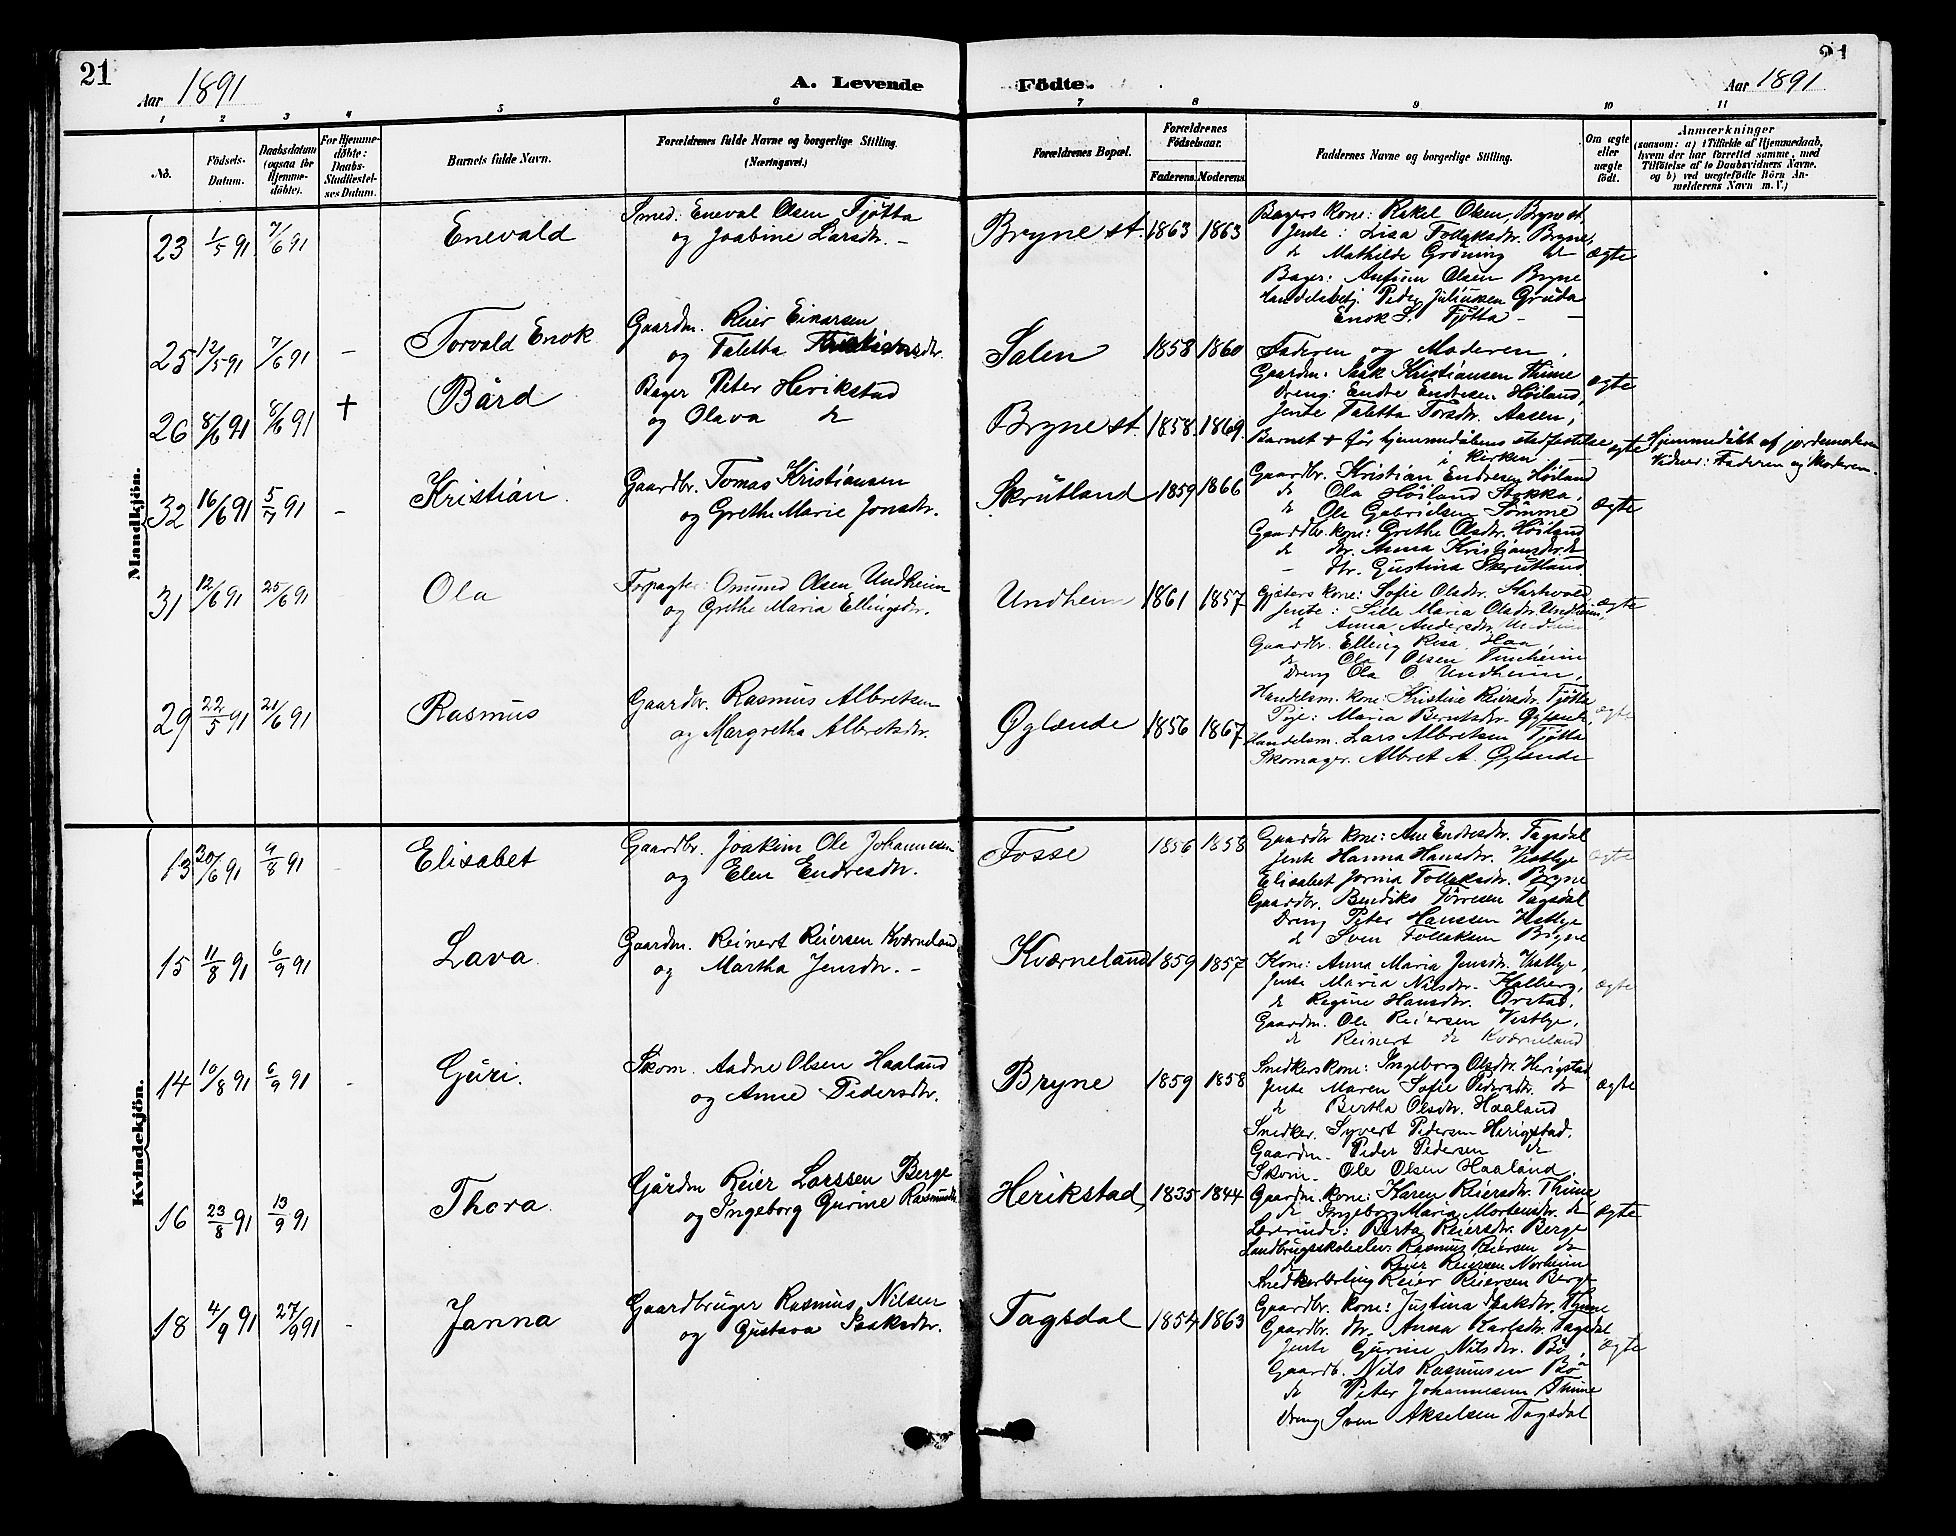 21
Aar 1891
A. Levende
Födte.
21
Aar 1891
1 2 3 4 5 6 7 8 9 10 11
No.
Födsels-Datum.
Daabsdatum (ogsaa for Hjemmedöbte).
For Hjemmedöbte: Daabs-Stadfæstelses Datum.
Barnets fulde Navn.
Forældrenes fulde Navne og borgerlige Stilling. (Næringsvei.)
Forældrenes Bopæl.
Forældrenes Födselsaar.
Faderens. Moderens.
Faddernes Navne og borgerlige Stilling.
Om ægte eller uægte födt.
Anmærkninger
(saasom: a) i Tilfælde af Hjemmedaab, hvem der har forrettet samme, med Tilföielse af to Daabsvidners Navne. og b) ved uægtefödte Börn Anmelderens Navn m. V.)
Mandkjön.
23 1/5 91 7/6 91 Enevald
Smed. Eneval Olsen Tjøtta
og Joabine Larsdtr. -
Bryne st. 1863 1863
Bagers kone: Rakel Olsen, Bryne st.
Jente: Lisa Tollaksdtr. Bryne,
do Mathilde Grøning do
ægte
Bager: Olsen Bryne
Handelsbetj. Peder Juliussen Gruda
Enok S. Tjøtta -
25 12/5 91 7/6 91 - Torvald Enok
Gaardm. Reier Einarsen
og Taletta Kristiensdtr.
Salen 1858 1860
Faderen og Moderen,
Gaardm. Isak Kristiansen Thime
Dreng: Endre Endresen Höiland,
Jente Taletta Torsdtr. Aasen,
ægte
26 8/6 91 8/6 91 + Bård
Bager Peter Herikstad
og Olava do
Bryne st. 1858. 1869.
Barnet + før hjemmedåbens stadfestelse
i kirken -
ægte
Hjemmedøbt af jordemoderen
Vidner: Faderen og Moderen.
32 16/6 91 5/7 91 - Kristian
Gaardbr. Tomas Kristiansen
og Grethe Marie Jonsdtr.
Skrutland 1859 1866
Gaardbr. Kristian Endresen Höiland
do Ola Höiland Stokka,
do Ole Gabrielsen Sømme
ægte
Gaardbr. kone: Grethe Olsdtr. Höiland
do dtr. Anna Kristjansdtr. do
- dtr. Gustina Skrutland
31 12/6 91 25/6 91 Ola
Forpagter: Omund Olsen Undheim
og Grethe Maria Ellingsdtr.
Undheim 1861 1857
Gjæters kone: Sofie Olsdtr.
Jente: Sille Maria Olsdtr. Undheim,
do Anna Andersdtr. Undheim
ægte
Gaardbr. Elling Risa. Haa
do Ola Olsen Tunheim
Dreng Ola O. Undheim,
29 22/5 91 21/6 91 Rasmus
Gaardbr. Rasmus Albretsen
og Margretha Albretsdtr.
Øglænde 1856 1867
Handelsm. kone: Kristine Reiersdtr. Tjøtta
Pige: Maria Berntsdtr. Øglænde,
Handelsm. Lars Albretsen Tjøtta
Skomager. Albret A. Øglænde
ægte
Kvindekjön.
13 30/6 91 9/8 91 Elisabet
Gaardbr. Joakim Ole Johannesen
og Elen Endresdtr.
Fosse 1856 1858
Gaardbr kone: Ane Endresdtr. Tagsdal
Jente Hanna Hansdtr. Vestlye
Elisabet Jorina Tollaksdtr. Bryne
ægte
Gaardbr. Bendiks Tørresen Tagsdal
Dreng Peter Hanssen Vestlye
do Sven Tollaksen Bryne
15 11/8 91 6/9 91 Lava
Gaardm. Reinert Reiersen Kværneland
og Martha Jensdtr. -
Kværneland 1859 1857
Kone: Anna Maria Jensdtr. Vestlye,
Jente Maria Nilsdtr. Kalberg,
do Regine Hansdtr. Orstad,
ægte
Gaardm. Ole Reiersen Vestlye,
do Reinert do Kværneland
14 10/8 91 6/9 91 - Guri.
Skom. Aadne Olsen Haaland
og Anne Pedersdtr.
Bryne 1859 1858
Snedkers kone: Ingeborg Olsdtr. Herigstad
Jente Maren Sofie Pedersdtr. do
do Bertha Olsdtr. Haaland
ægte
Snedker. Syvert Pedersen Herigstad.
Gaardm. Peder Pedersen do
Skom. Ole Olsen Haaland.
16 23/8 91 13/9 91 Thora.
Gårdm Reier Larssen Berge
og Ingeborg Gurine Rasmusdtr
Herikstad 1835 1844
Gaardm. kone: Karen Reiersdtr. Thime,
do Ingeborg Maria Mortensdtr. do
Lærerinde: Berta Reiersdtr. Berge
ægte
Landbrugsskoleelev. Rasmus Reiersen do
do Reier Reiersen Norheim
Snedkerlærling Reier Reiersen Berge
18 4/9 91 27/9 91 - Janna
Gaardbruger Rasmus Nilsen
og Gustava Isaksdtr.
Tagsdal 1854 1863
Gaardbr. kone: Justina Isaksdtr. Thime
Gaardbr. dtr. Anna Karlsdtr. Tagsdal
Jente Gurine Nilsdtr. Bö,
ægte
Gaardb. Nils Rasmussen Bö
do Peter Johannesen Thime
Dreng Sven Akselsen Tagsdal